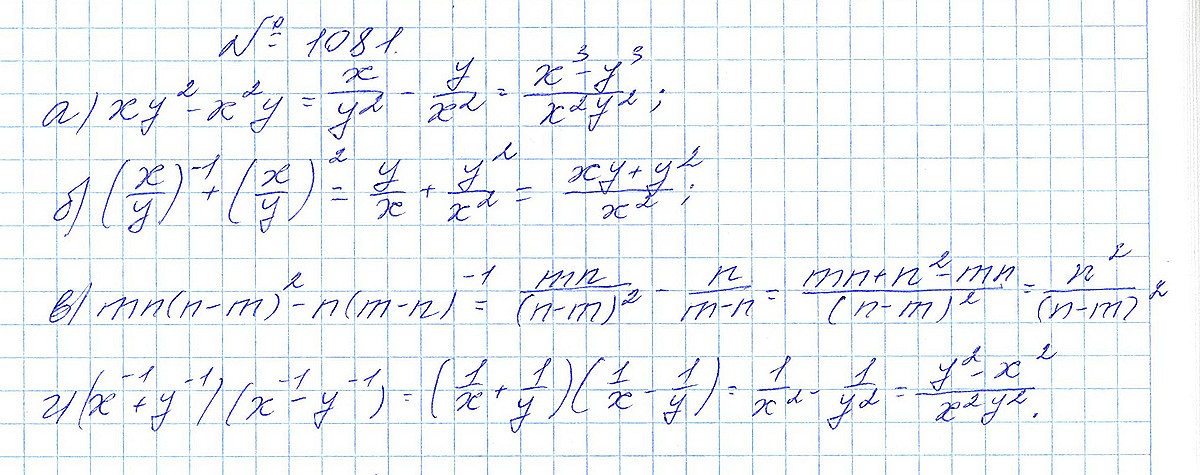 № 1081.
а) xy² - x²y = x/y² - y/x² = (x³ - y³)/(x²y²);
б) (x/y)⁻¹ + (x/y)² = y/x + y²/x² = (xy + y²)/x²;
в) mn(n-m)² - n(m-n)⁻¹ = mn/(n-m)² - n/(m-n) = (mn + n² - mn)/(n-m)² = n²/(n-m)²
г) (x⁻¹ + y⁻¹)(x⁻¹ - y⁻¹) = (1/x + 1/y)(1/x - 1/y) = 1/x² - 1/y² = (y² - x²)/(x²y²).